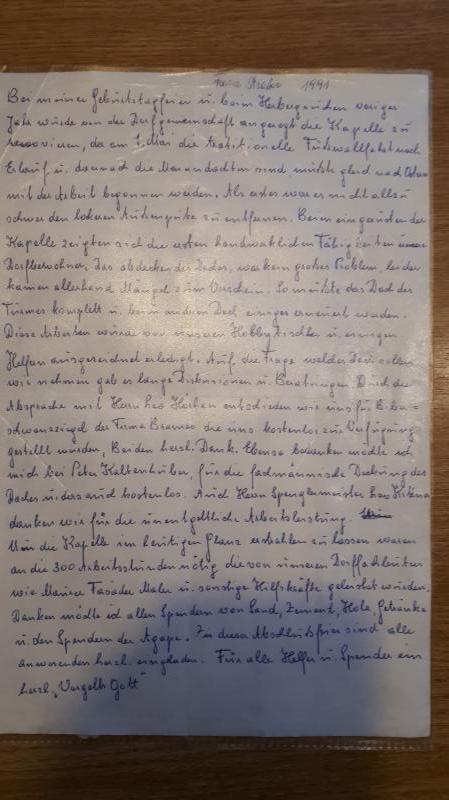 1991
Bei meiner Geburtstagfeier u. beim Herbergsuchen voriges
Jahr wurde von der Dorfgemeinschaft angeregt die Kapelle zu
renovieren, da am 1. Mai die traditionelle Fußwallfahrt nach
Erlauf u. danach die Maiandachten sind, mußte gleich nach Ostern
mit der Arbeit begonnen werden. Als erstes war es nicht allzu
schwer den lockeren Außenputz zu entfernen. Beim eingerüsten der
Kapelle zeigten sich die ersten handwerklichen Fähigkeiten unserer
Dorfbewohner. Das abdecken des Daches, war kein großes Problem, leider
kamen allerhand Mängel zum Vorschein. So mußte das Dach des
Turmes komplett u. beim anderen Dach einiges erneuert werden.
Diese Arbeiten wurde von unseren Hobbytischler u. einigen
Helfern ausgezeichnet erledigt. Auf die Frage welchen Ziegel sollen
wir nehmen gab es lange Diskussionen u. Beratungen. Durch die
Absprache mit Herrn Leo entschieden wir uns für Biber=
schwanzziegel der Firma Bramac die uns kostenlos zur Verfügung
gestellt wurden, Beiden herzl. Dank. Ebenso bedanken möchte ich
mich bei Peter Kaltenhuber, für die fachmännische Deckung des
Daches u. das auch kostenlos. Auch Herrn Spenglermeister Leo
danken wir für die unentgeltliche Arbeitsleistung.
Um die Kapelle im heutigen Glanz erstrahlen zu lassen waren
an die 300 Arbeitsstunden nötig die von unseren Dorffachleuten
wie Maurer Fasader Maler u. sonstige Hilfskräfte geleistet wurden.
Danken möchte ich allen Spendern von Sand, Zement, Holz, Getränke
u. den Spendern der Agape. Zu dieser Abschlußfeier sind alle
anwesenden herzl. eingeladen. Für alle Helfer u. Spender ein
herzl. „Vergelts Gott"